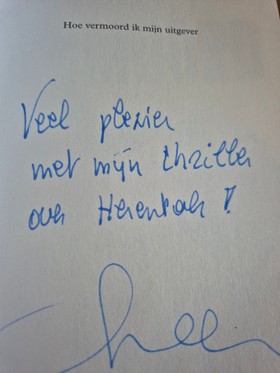 Hoe vermoord ik mijn uitgever
Veel plezier
met mijn thriller
over Herentals!